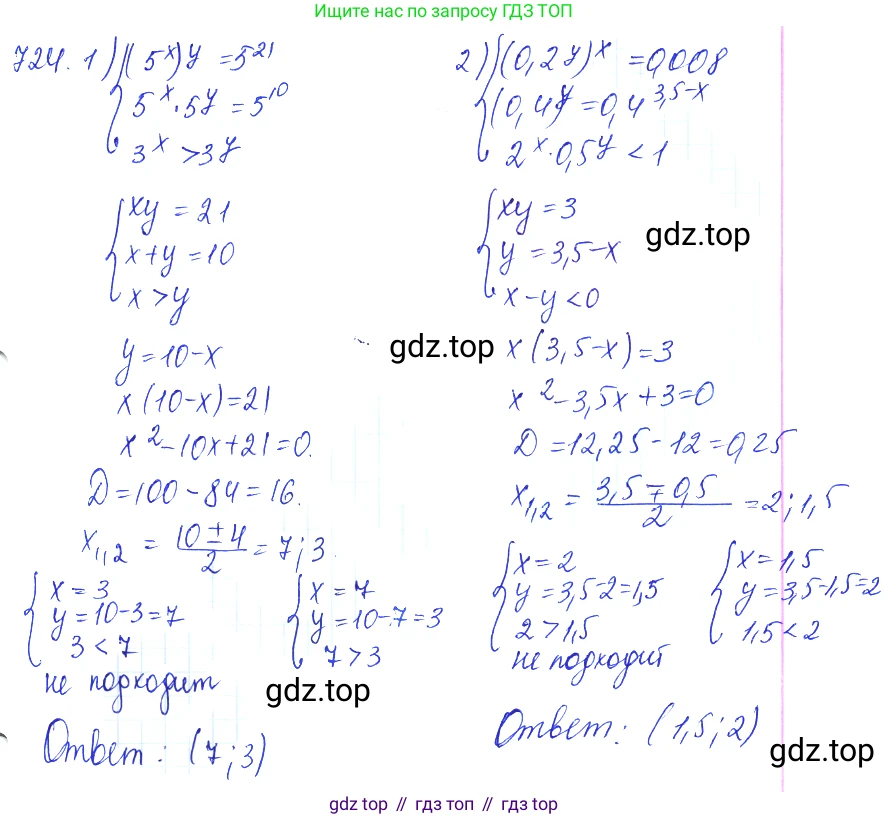 Ищите нас по запросу ГДЗ ТОП
724. 1) { (5^x)^y = 5^21
5^x · 5^y = 5^10
3^x > 3^y
{ xy = 21
x + y = 10
x > y
y = 10 - x
x (10 - x) = 21
x^2 - 10x + 21 = 0.
D = 100 - 84 = 16.
x_1,2 = (10 ± 4)/2 = 7; 3.
{ x = 3
y = 10 - 3 = 7
3 < 7
не подходит
{ x = 7
y = 10 - 7 = 3
7 > 3
Ответ: (7; 3)
2) { (0,2^y)^x = 0,008
(0,4)^y = 0,4^3,5-x
2^x · 0,5^y < 1
{ xy = 3
y = 3,5 - x
x - y < 0
x (3,5 - x) = 3
x^2 - 3,5x + 3 = 0
D = 12,25 - 12 = 0,25
x_1,2 = (3,5 ∓ 0,5)/2 = 2; 1,5
{ x = 2
y = 3,5 - 2 = 1,5
2 > 1,5
не подходит
{ x = 1,5
y = 3,5 - 1,5 = 2
1,5 < 2
Ответ: (1,5; 2)
gdz.top
gdz.top
gdz.top
gdz.top
gdz top // гдз топ // gdz top